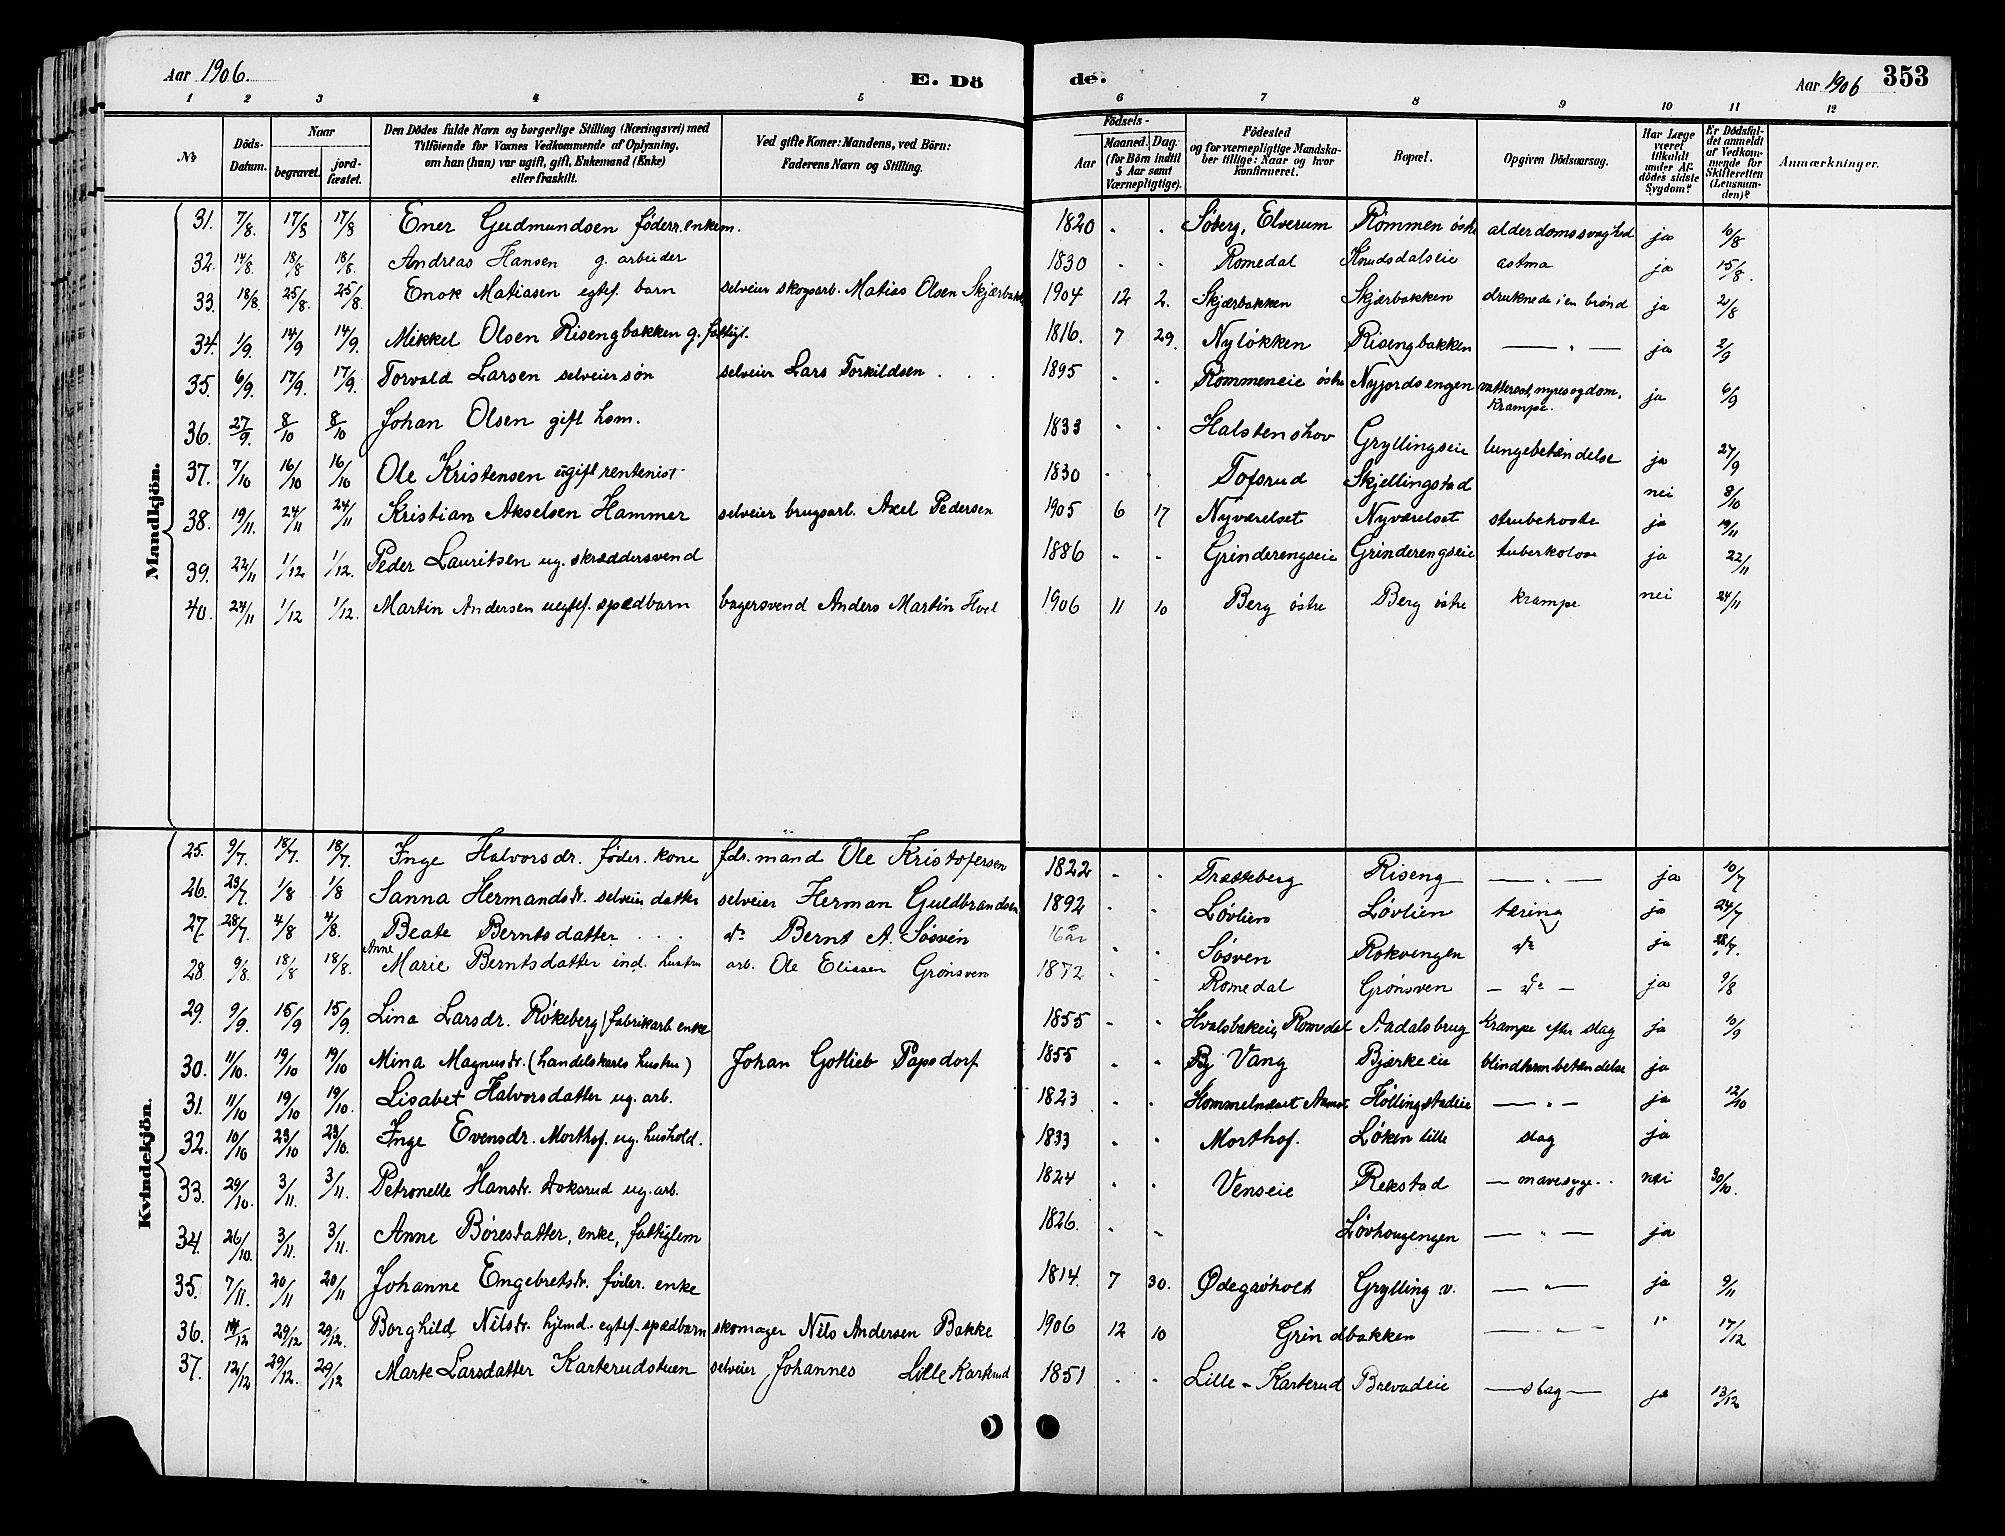 Aar 1906.
E. Dö
de.
Aar 1906
353
1 2 3 4 5 6 7 8 9 10 11 12
No
Döds-Datum.
Naar
begravet.
jordfæstet.
Den Dödes fulde Navn og borgerlige Stilling (Næringsvei) med Tilföiende for Voxnes Vedkommende af Oplysning, om han (hun) var ugift, gift, Enkemand (Enke) eller fraskilt.
Ved gifte Koner: Mandens, ved Börn: Faderens Navn og Stilling.
Födsels-
Aar
Maaned. Dag.
(for Börn indtil 5 Aar samt Værnepligtige).
Födested og for værnepligtige Mandskaber tillige: Naar og hvor konfirmeret.
Bopæl.
Opgiven Dödsaarsag.
Har Læge været tilkaldt under Afdödes sidste Sygdom?
Er Dödsfaldet anmeldt af Vedkommende for Skifteretten (Lensmanden)?
Anmærkninger.
Mandkjön.
31. 7/8. 17/8 17/8 Ener Gudmundsen föderr. enkem. 1820 - - Søberg, Elverum Rømmen östre alderdomssvaghed ja 10/8
32. 14/8. 18/8 18/8. Andreas Hansen g. arbeider 1830 - - Romedal Knudsdalseie astma ja 15/8.
33. 18/8. 25/8. 25/8. Enok Matiasen egtef. barn selveier skogsarb. Matias Olsen Skjærbakk 1904 12 2. Skjærbakken Skjærbakken druknede i en brønd ja 21/8
34. 1/9. 14/9 14/9. Mikkel Olsen Risengbakken g. fattigl. 1816. 7 29. Nyløkken Risengbakken — " — ja 2/9
35. 6/9. 17/9. 17/9. Torvald Larsen selveiersön selveier Lars Torkildsen . . . 1895 - - Rømmeneie östre Nyjordsengen vattersot, nyresygdom, krampe. ja 6/9
36. 27/9. 8/10 8/10 Johan Olsen gift hsm. 1833 - - Halstenshov Gryllingseie lungebetændelse ja 27/9
37. 7/10 16/10 16/10 Ole Kristensen ugift rentenist 1830 - - Tofsrud Skjellingstad nei 8/10
38. 19/11. 24/11 24/11 Kristian Akselsen Hammer selveier brugsarb. Axel Pedersen 1905 6 17 Nyværelset Nyværelset strubehoste ja 19/11
39. 22/11 1/12 1/12. Peder Lauritsen ug. skræddersvend 1886 - - Grinderengseie Grinderengseie tuberkolose ja 22/11
40. 24/11 1/12 1/12. Martin Andersen uegtef. spædbarn bagersvend Anders Martin Hvel 1906 11 10 Berg östre Berg östre krampe nei 24/11
Kvindekjön.
25. 9/7. 18/7. 18/7. Inge Halvorsdr. föder. kone fdr. mand Ole Kristofersen 1822 - - Trætteberg Riseng — " — ja 10/7
26. 23/7 1/8 1/8 Sanna Hermandsdr. selveierdatter selveier Herman Guldbrandsen 1892 - - Løvlien Løvlien tæring ja 24/7
27. 28/7. 4/8 4/8. Beate Berntsdatter . . . do Bernt A. Søsven 16 år - - Søsven Rokvengen do ja 28/7.
28. 9/8. 18/8 18/8. Anne Marie Berntsdatter ind. hustru arb. Ole Eliasen Grønsven 1872 - - Romedal Grønsven — do — ja 9/8
29. 9/9. 15/9 15/9. Lina Larsdr. Røkeberg / fabrikarb. enke 1855 - - Hvalsbakeie, Romedal Aadalsbrug Krampe efter slag ja 10/9
30. 11/10. 19/10 19/10 Mina Magnusdr. (handelskarls hustru) Johan Gotlieb Papsdorf 1855 - - By Vang Bjerkeeie blindtarmbetændelse ja
31. 11/10 19/10 19/10. Lisabet Halvorsdatter ug. arb. 1823 - - Hommelnæset Aamot Føllingstadeie — " — ja 12/10
32. 10/10 23/10 23/10. Inge Evensdr. Morthof. ug. hushold. 1833 - - Morthof. Løken lille slag ja
33. 29/10. 3/11. 3/11. Petronelle Hansdr. Doksrud ug. arb. 1824 - - Venseie Rekstad — mavesyge . . nei 30/10.
34. 26/10. 3/11. 3/11. Anne Børesdatter, enke, fattiglem 1826. - - Løvhougengen — " — ja
35. 7/11. 20/11 20/11 Johanne Engebretsdr. föder. enke 1814. 7 30. Ødegårholt Grylling v. — " — ja 9/11
36. 14/12 29/12 29/12. Borghild Nilsdr. hjemd. egtef. spædbarn skomager Nils Andersen Bakke 1906 12 10 Grindbakken — " — " 17/12
37. 12/12 29/12. 29/12 Marte Larsdatter Karterudstuen selveier Johannes Lille Karterud 1851 - - Lille-Karterud Brevadeie — slag — ja 13/12